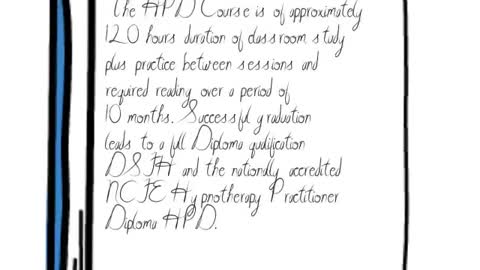 The HPD Course is of approximately
120 hours duration of classroom study
plus practice between sessions and
required reading over a period of
10 months. Successful graduation
leads to a full Diploma qualification
DSFH and the nationally accredited
NCFE Hypnotherapy Practitioner
Diploma HPD.